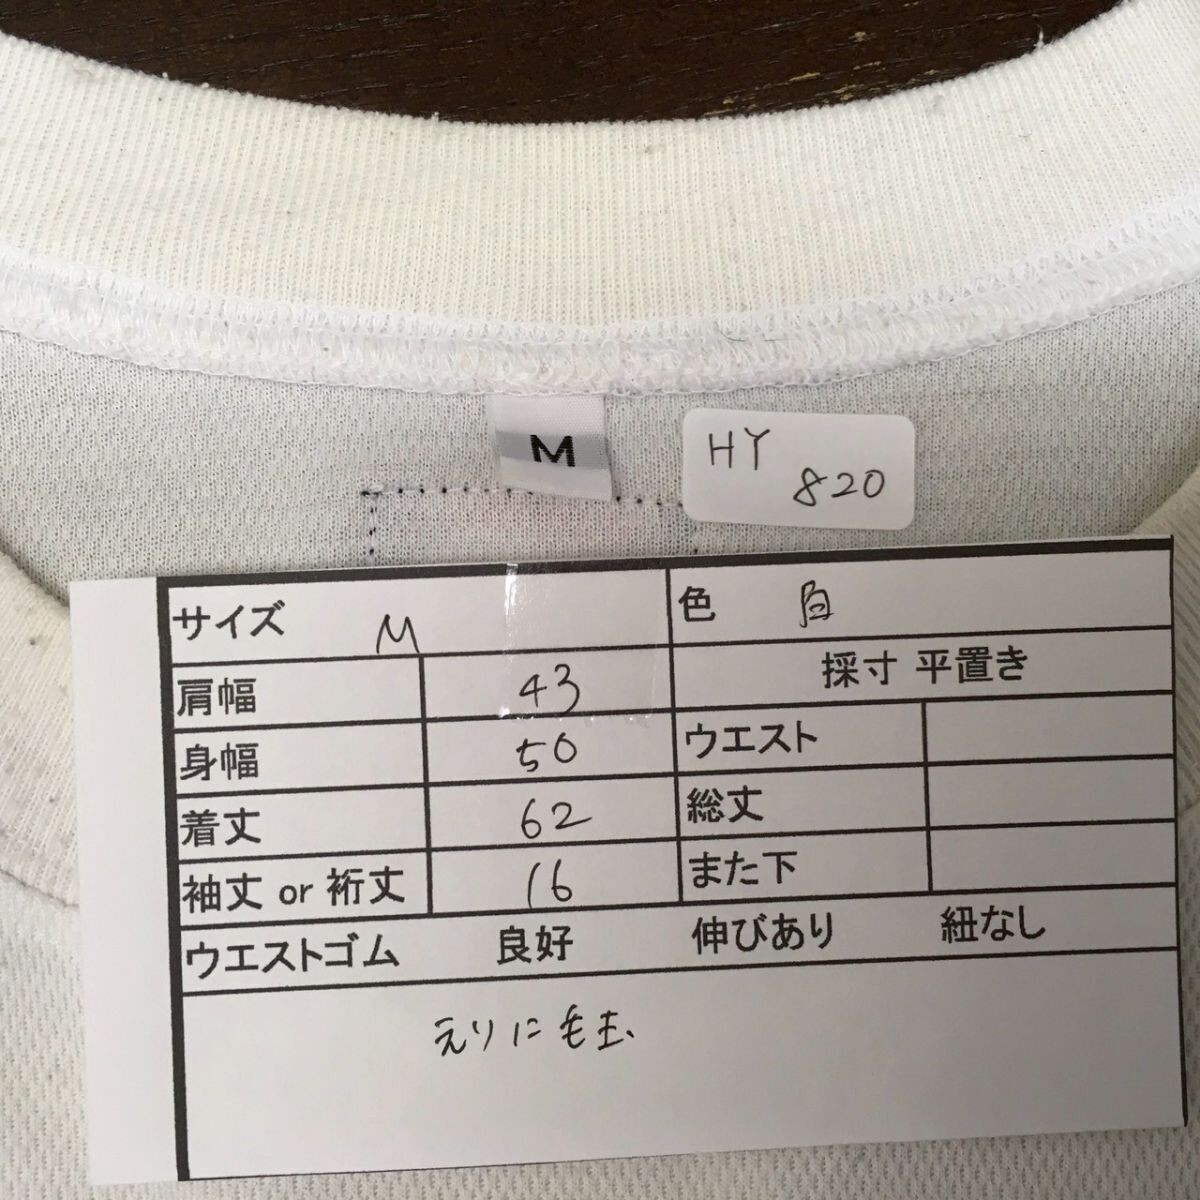 M
HY
820
サイズ M 色 白
採寸 平置き
肩幅 43
身幅 50 ウエスト
着丈 62 総丈
袖丈 or 裄丈 16 また下
ウエストゴム 良好 伸びあり 紐なし
えりに毛玉、